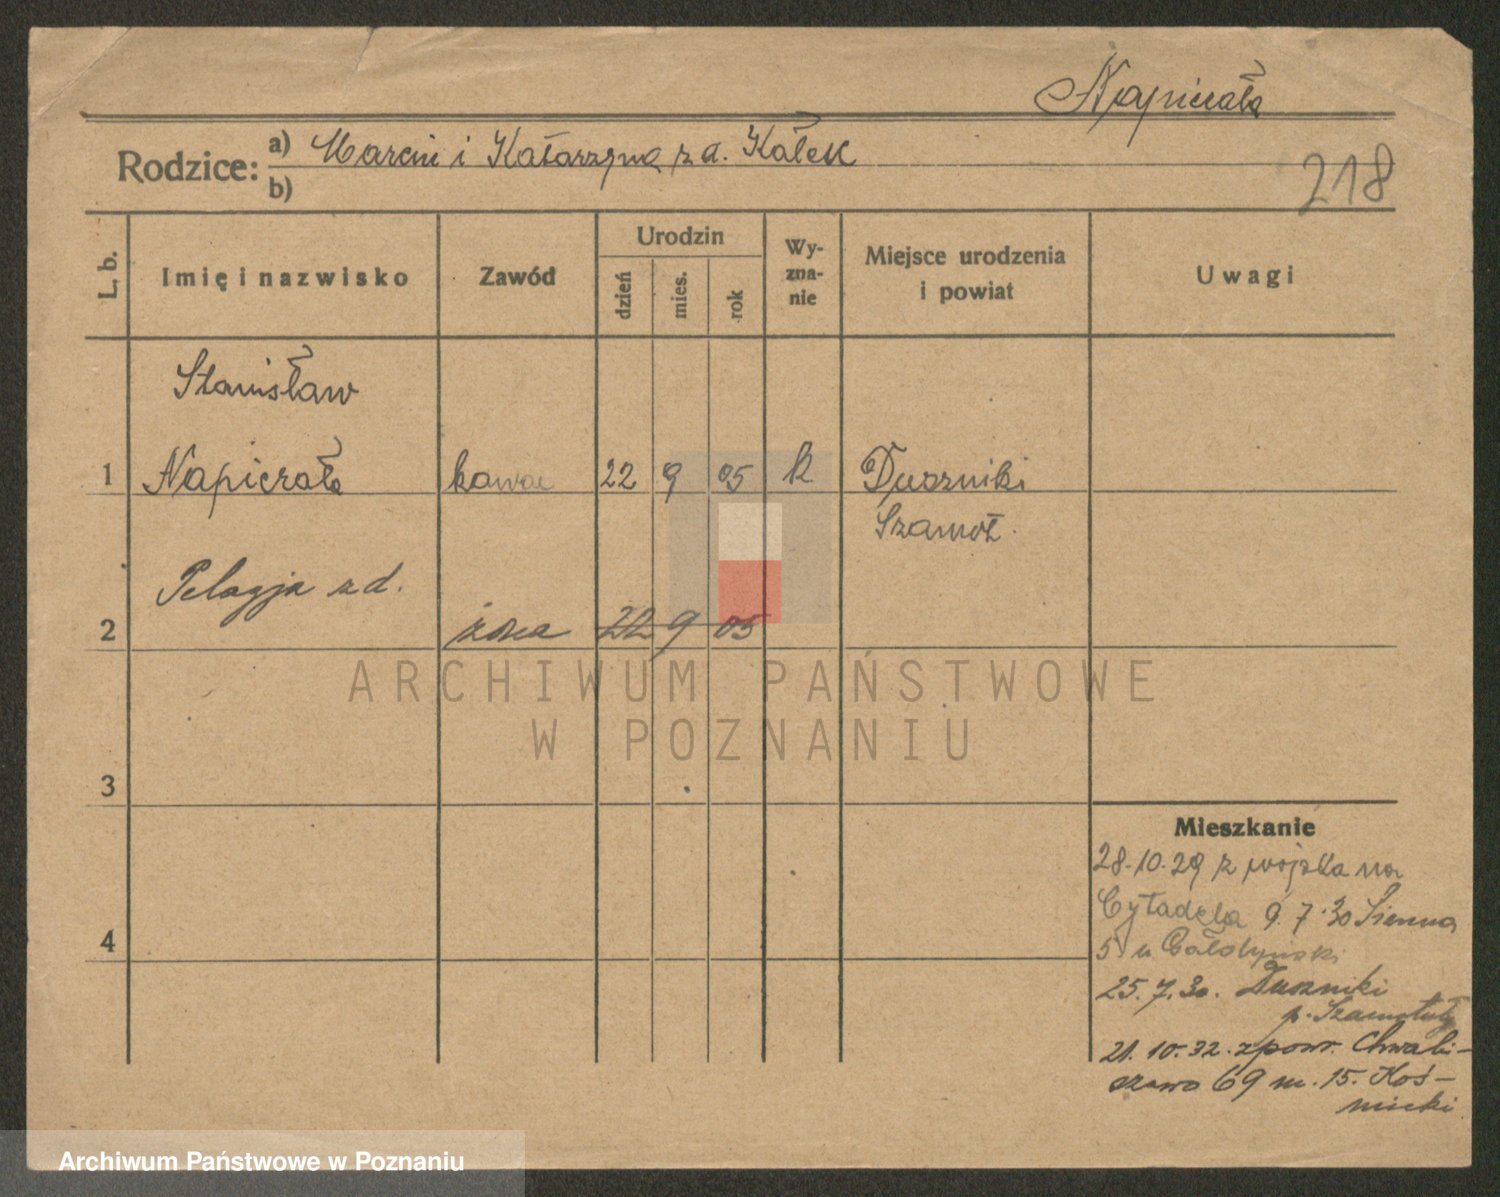 Napierała
Rodzice: a) Marcin i Katarzyna z d. Kałek
b)
218
L. b.
Imię i nazwisko
Zawód
Urodzin
dzień
mies.
rok
Wy-
zna-
nie
Miejsce urodzenia
i powiat
Uwagi
Stanisław
1 Napierała kowal 22 9 05 k Duszniki
Szamot.
Pelagja z d.
2 żona 22 9 05
3
4
Mieszkanie
28.10.29 z wojska na
Cytadela 9.7.30 Sienna
5 u
25.7.30. Duszniki
p. Szamotuły
21.10.32. z pow. Chwali-
szewo 69 m. 15. Koś-
micki
ARCHIWUM PAŃSTWOWE
W POZNANIU
Archiwum Państwowe w Poznaniu